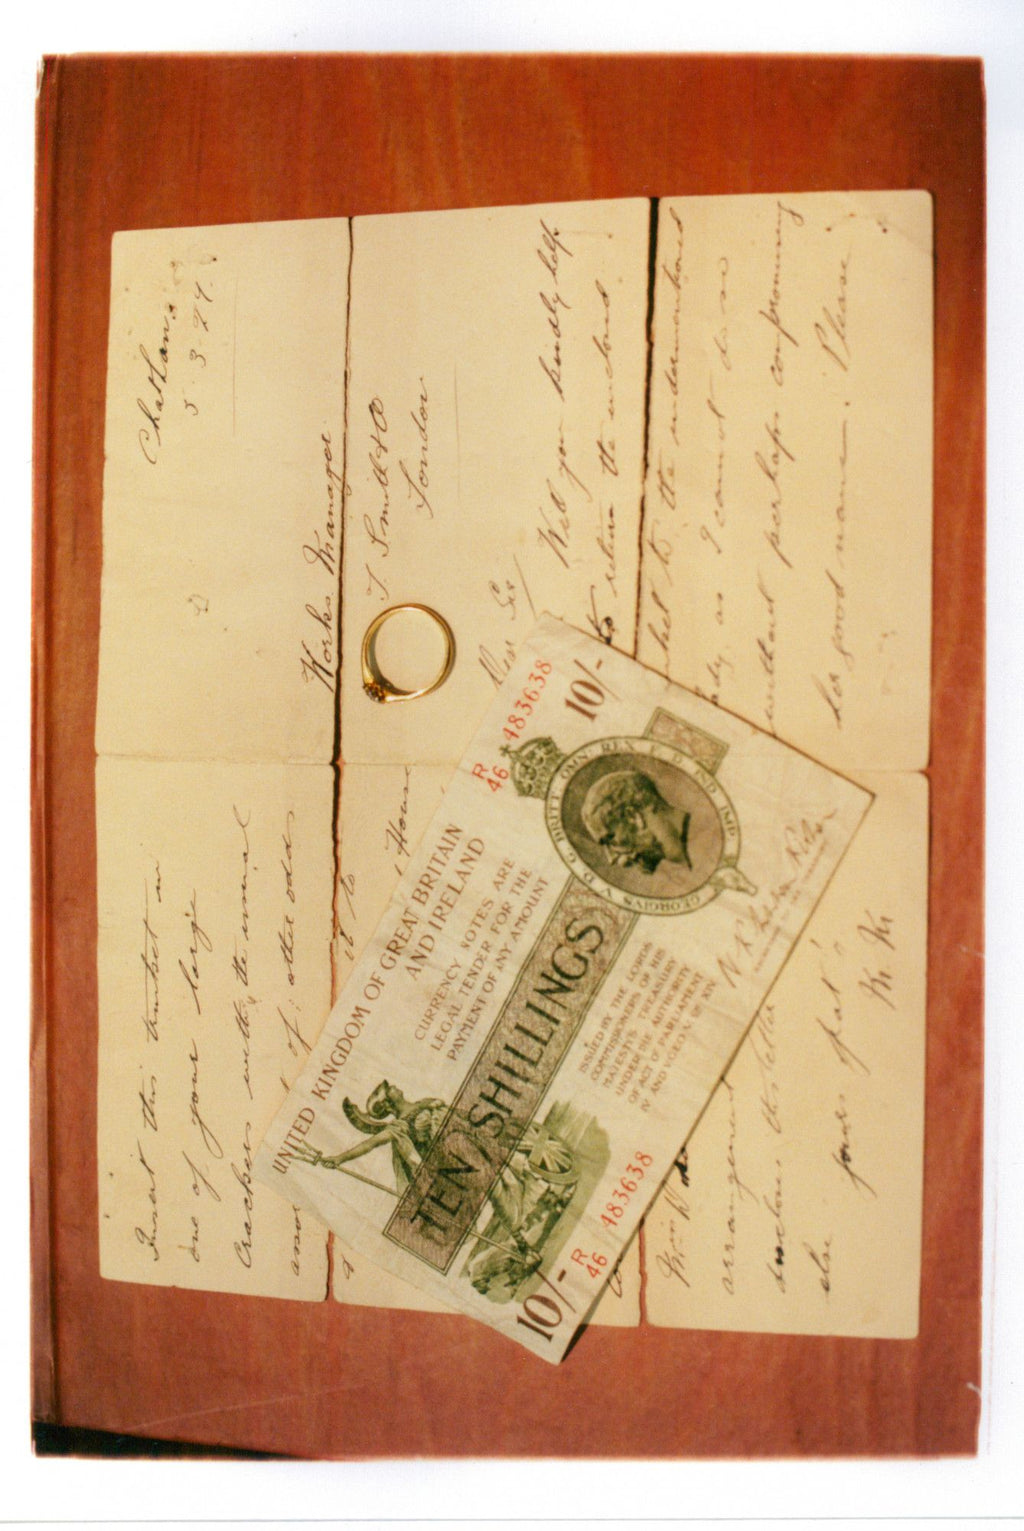 Chatham.
5.3.27.
Works Manager
T. Smith & Co
London
Dear Sir
Will you kindly help
to return the enclosed
to the undermentioned
lady, as I cannot do so
without perhaps compromising
her good name. Please
Insert this trinket in
one of your large
Crackers with the usual
of other odds
to
House
arrangement
disclose this letter
else
yours
UNITED KINGDOM OF GREAT BRITAIN
AND IRELAND
R
46
483638
10/-
CURRENCY NOTES ARE
LEGAL TENDER FOR THE
PAYMENT OF ANY AMOUNT
TEN SHILLINGS
GEORGIVS V D G BRITT OMN REX F D IND IMP
ISSUED BY THE LORDS
COMMISSIONERS OF HIS
MAJESTY'S TREASURY
UNDER THE AUTHORITY
OF ACT OF PARLIAMENT
IV AND V GEO. V. CH XIV.
10/-
R
46
483638